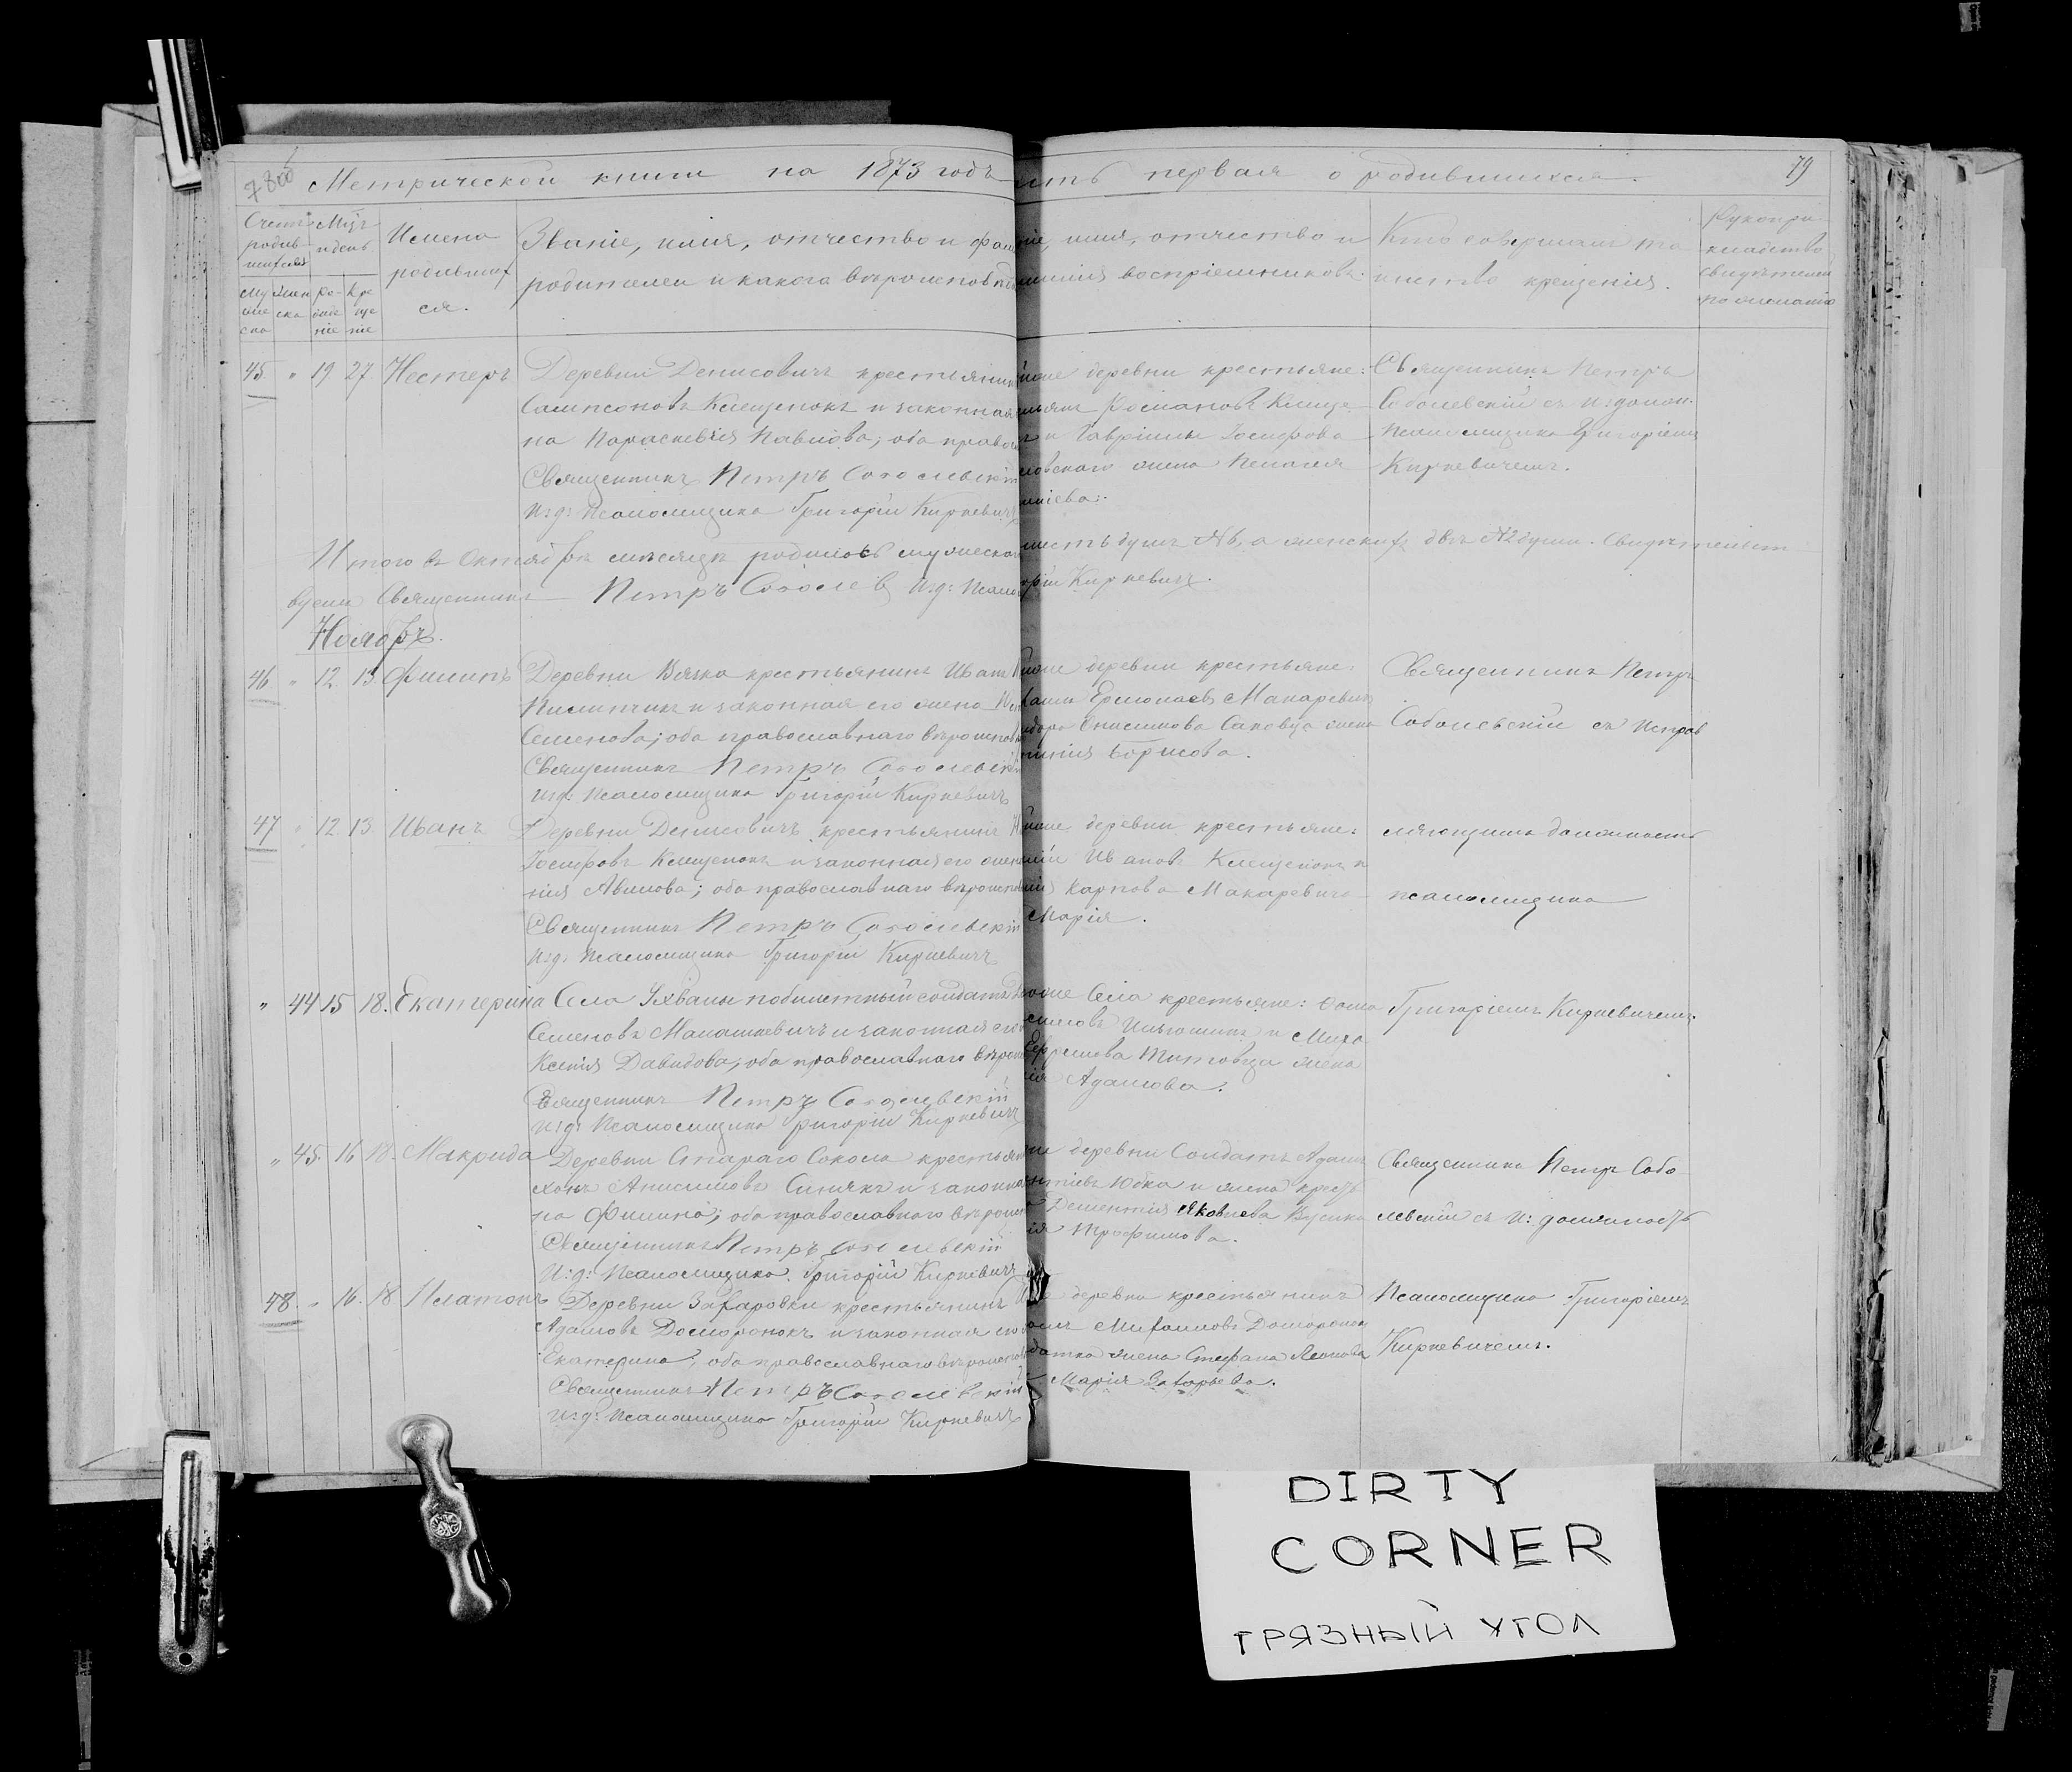 Метрической книги на 1873 годъ
первая о родившихся.
79
Счетъ родив-шихся
Мѣс. и день
Имена родившихся.
Званіе, имя, отчество и фам
родителей и какого вѣроисповѣд
имя, отчество и
воспріемниковъ.
Кто совершалъ та
инство крещенія.
Рукопри-
кладство
свидѣтелей
по желанію
45. " 19 27. Нестеръ
Деревни Денисовичъ крестьянинъ
Сампсоновъ Клещенокъ и законная
на Параскевія Павлова; оба право
Священникъ Петръ Соболевскій
И: д: Псаломщика Григорій Киркевичъ
деревни крестьяне:
Романовъ Клеще
и Гавріила Іосифова
жена Пелагея
Священникъ Петръ
Соболевскій съ И: долж.
Псаломщика Григоріемъ
Киркевичемъ.
Итого въ Октябрѣ мѣсяцѣ родилось мужеска
шесть душъ №6, а женскихъ двѣ №2 души. Свидѣтельст
вуемъ Священникъ Петръ Соболев И: д: Псало
Киркевичъ.
Ноябрь.
46. " 12. 13 Филипъ
Деревни Вязка крестьянинъ Иванъ
Пилипчикъ и законная его жена
Семенова; оба православнаго вѣроиспов
Священникъ Петръ Соболевскій
И: д: Псаломщика Григорій Киркевичъ
деревни крестьяне:
Ермолаевъ Макаревич
Онисимова Саковца жена
Борисова.
Священникъ Петръ
Соболевскій съ Исправ
47 " 12 13. Иванъ
Деревни Денисовичъ крестьянинъ
Іосифовъ Клещенокъ и законная его жен
нія Авилова; оба православнаго вѣроиспов
Священникъ Петръ Соболевскій
И: д: Псаломщика Григорій Киркевичъ
деревни крестьяне:
Ивановъ Клещенокъ и
Карпова Макаревича
Марія.
ляющимъ должность
псаломщика
" 44 15 18. Екатерина
Села Ухвалы побилетный солдатъ
Семеновъ Манашкевичъ и законная его
Ксенія Давидова; оба православнаго вѣрои
Священникъ Петръ Соболевскій
И: д: Псаломщика Григорій Киркевичъ
Села крестьяне: Фома
и Миха
Ефремова Титовца жена
Адамова.
Григоріемъ Киркевичемъ.
" 45. 16 18. Макрида
Деревни Стараго Сокола крестьян
Анисимовъ Синякъ и законна
на Филина; оба православнаго вѣроисп
Священникъ Петръ Соболевскій
И: д: Псаломщика Григорій Киркевичъ
деревни Солдатъ Адамъ
Юбка и жена крест
Дементія Яковлева Бусика
Трофимова.
Священникъ Петръ Собо
левскій съ И: должность
48. " 16. 18 Платонъ
Деревни Захаровки крестьянинъ
Адамовъ Доморонокъ и законная его
Екатерина; оба православнаго вѣроиспов
Священникъ Петръ Соболевскій
И: д: Псаломщика Григорій Киркевичъ
деревни крестьянинъ
Михаиловъ Доморонок
жена Стефана Леонова
Марія Захарьева.
Псаломщика Григоріемъ
Киркевичемъ.
DIRTY
CORNER
ГРЯЗНЫЙ УГОЛ